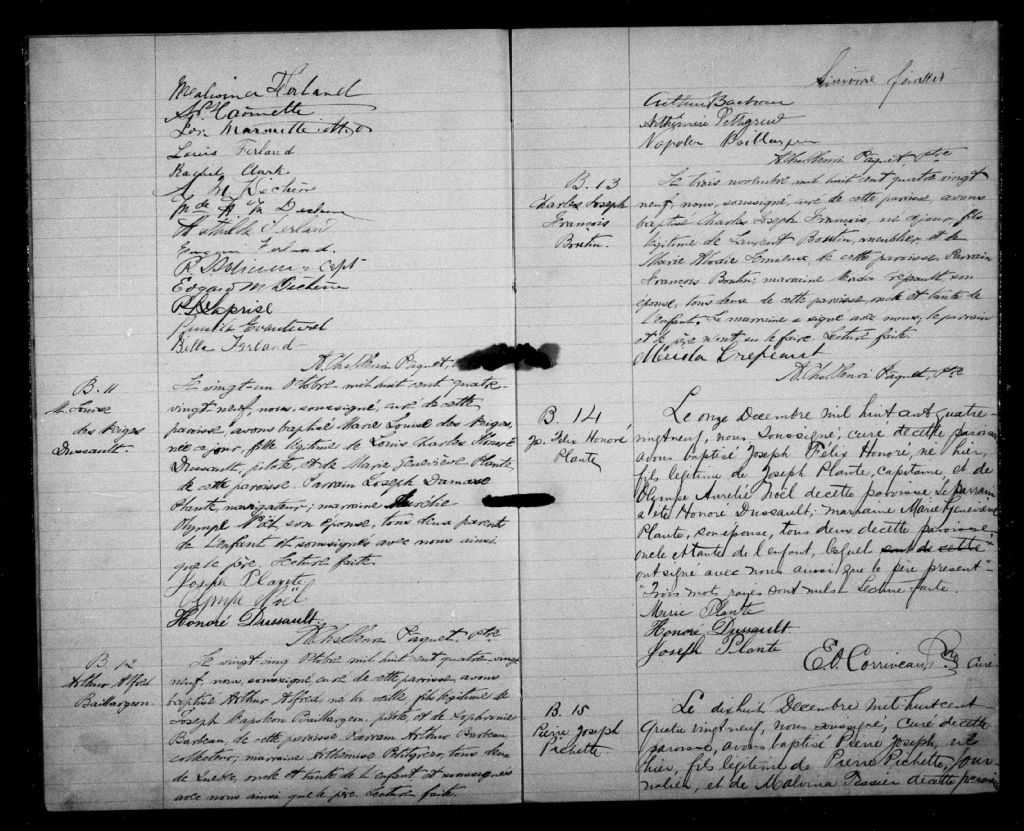 Malvina Ferland
Jos. Marmette
Louis Ferland
Rachel Clark
A. M. Dechène
Mde A. M. Dechene
Mathilde Ferland
Ferland
Capt
Edgard M. Dechène
P. Laprise
Bella Ferland
A. Chs. Henri Paquet, ptre
B. 11
M. Louise
des Neiges
Dussault.
Le vingt-un Octobre mil huit cent quatre-
vingt neuf, nous, soussigné, curé de cette
paroisse, avons baptisé Marie Louise des Neiges,
née ce jour, fille légitime de Louis Charles Honoré
Dussault, pilote, et de Marie Geneviève Plante,
de cette paroisse. Parrain Joseph Damase
Plante, navigateur; marraine Aurélie
Olympe Noël son épouse, tous deux parents
de l'enfant et soussignés avec nous ainsi
que le père. Lecture faite.
Joseph Plante
Olympe Noël
Honoré Dussault.
A. Chs. Henri Paquet, ptre
B. 12
Arthur Alfred
Baillargeon.
Le vingt cinq Octobre mil huit cent quatre-vingt
neuf, nous, soussigné, curé de cette paroisse, avons
baptisé Arthur Alfred né la veille fils légitime de
Joseph Napoléon Baillargeon, pilote, et de Sophronie
Barbeau, de cette paroisse. Parrain Arthur Barbeau
collecteur; marraine Arthémise Petitgrew, tous deux
de Québec, oncle et tante de l'enfant et soussignés
avec nous ainsi que le père. Lecture faite.
feuillet
Arthur Barbeau
Arthémise Pettigrew
Napoléon Baillargeon
A. Chs. Henri Paquet, ptre
B. 13
Charles Joseph
François
Boutin.
Le trois novembre mil huit cent quatre vingt
neuf, nous, soussigné, curé de cette paroisse, avons
baptisé Charles Joseph François, né ce jour, fils
légitime de Laurent Boutin, meublier et de
Marie Elmodie Lemelin de cette paroisse. Parrain
François Boutin; marraine son
épouse, tous deux de cette paroisse, oncle et tante de
l'enfant. La marraine a signé avec nous, le parrain
et le père n'ont su le faire. Lecture faite.
Crepeault
A. Chs. Henri Paquet, ptre
B. 14
Jos. Félix Honoré
Plante
Le onze Decembre mil huit cent quatre-
vingt neuf, nous, soussigné, curé de cette paroisse
avons baptisé Joseph Félix Honoré, né hier,
fils légitime de Joseph Plante, capitaine, et de
Olympe Aurélie Noël de cette paroisse. Le parrain
a été Honoré Dussault; marraine Marie Geneviève
Plante, son épouse, tous deux de cette paroisse
oncle et tante de l'enfant, lequel sont de cette
ont signé avec nous ainsi que le père présent
Trois mots rayés sont nuls. Lecture faite.
Marie Plante
Honoré Dussault.
Joseph Plante
Ed. Corriveau Ptre Curé
B. 15
Pierre Joseph
Pichette
Le dix huit Decembre mil huit cent
quatre vingt neuf, nous, soussigné, curé de cette
paroisse, avons baptisé Pierre Joseph, né
hier, fils légitime de Pierre Pichette, jour-
nalier, et de Malvina Tessier de cette paroisse